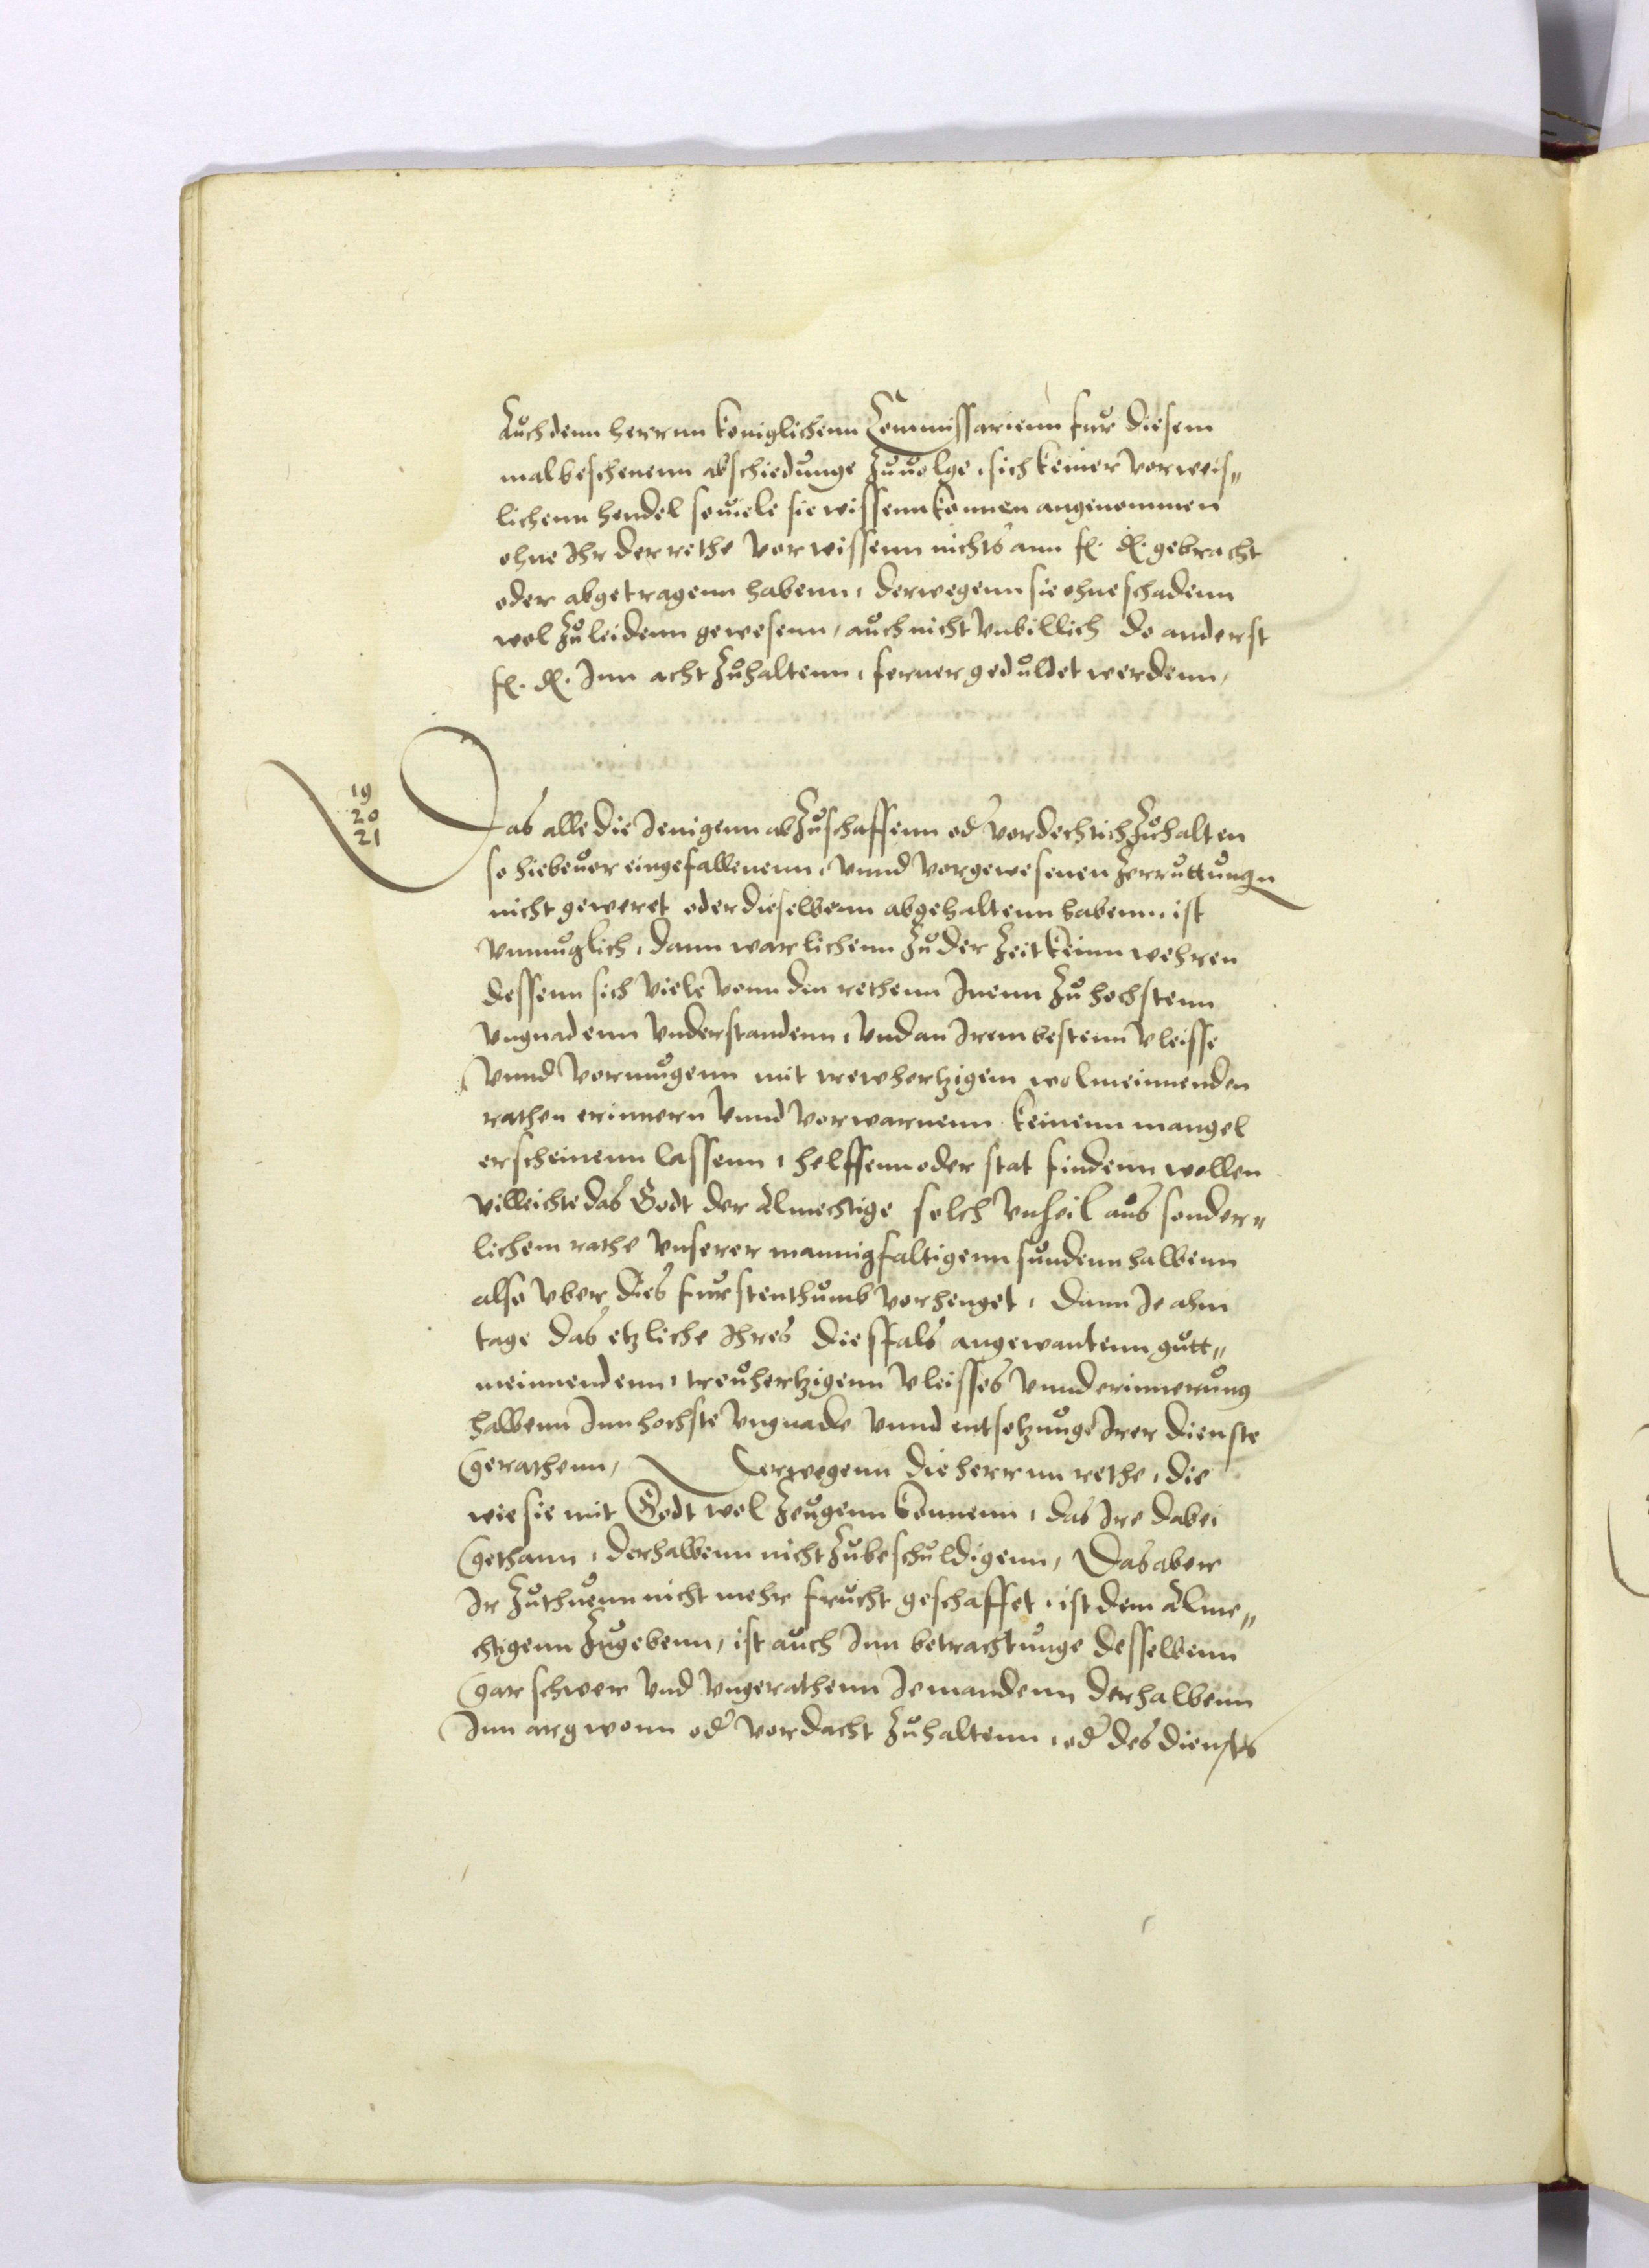 Auch denn herrnn koniglichenn Commissarienn fur diesem
mal beschenenn abschiedunge zuuolge, sich keiner vorweis„
lichenn hendel souiele sie wissenn konnen angenommen
ohne Ihr der rethe vorwissenn nichts ann f. d. gebracht
oder abgetragenn habenn, derwegenn sie ohne schadenn
wol zu leidenn gewesenn, auch nicht vnbillich do anderst
f. d. Inn acht zuhaltenn, ferner geduldet werdenn,
19
20
21
Das alle die Jenigenn abzuschaffenn od vordechtich zuhalten
so hiebeuor eingefallenenn, vnnd vorgewesenen zerruttungn
nicht geweret oder dieselbenn abgehaltenn habenn, ist
vnmuglich, dann warlichenn zu der zeit keinn wehren
dessenn sich viele vonn den rethenn Inenn zu hochstenn
vngnadenn vnderstandenn, vnd an Irem bestenn vleisse
vnnd vormugenn mit trewhertzigem wolmeinnenden
rathen erinnern vnnd vorwarnenn keinenn mangel
erscheinenn lassenn, helffenn oder stat findenn wollen
villeichte das Godt der Almechtige solch vnheil aus sonder„
lichem rathe vnserer mannigfaltigenn sundenn halbenn
also vber dies furstenthumb vorhenget, dann Je ahm
tage das etzliche Ihres diesfals angewantenn gutt„
meinnendenn, treuhertzigenn vleisses vnnd erinnerung
halbenn Inn hochste vngnade vnnd entsetzunge Irer dienste
gerathenn, Derwegenn die herrnn rethe, die
wie sie mit Godt wol zeugenn konnenn, das Ire dabei
gethann, derhalbenn nicht zubeschuldigenn, Das aber
Ir zuthuenn nicht mehr frucht geschaffet, ist dem Alme„
chtigenn zugebenn, ist auch Inn betrachtunge desselbenn
gar schwer vnd vngerathenn Jemandenn derhalbenn
Inn argwonn od vordacht zuhaltenn, od des diensts